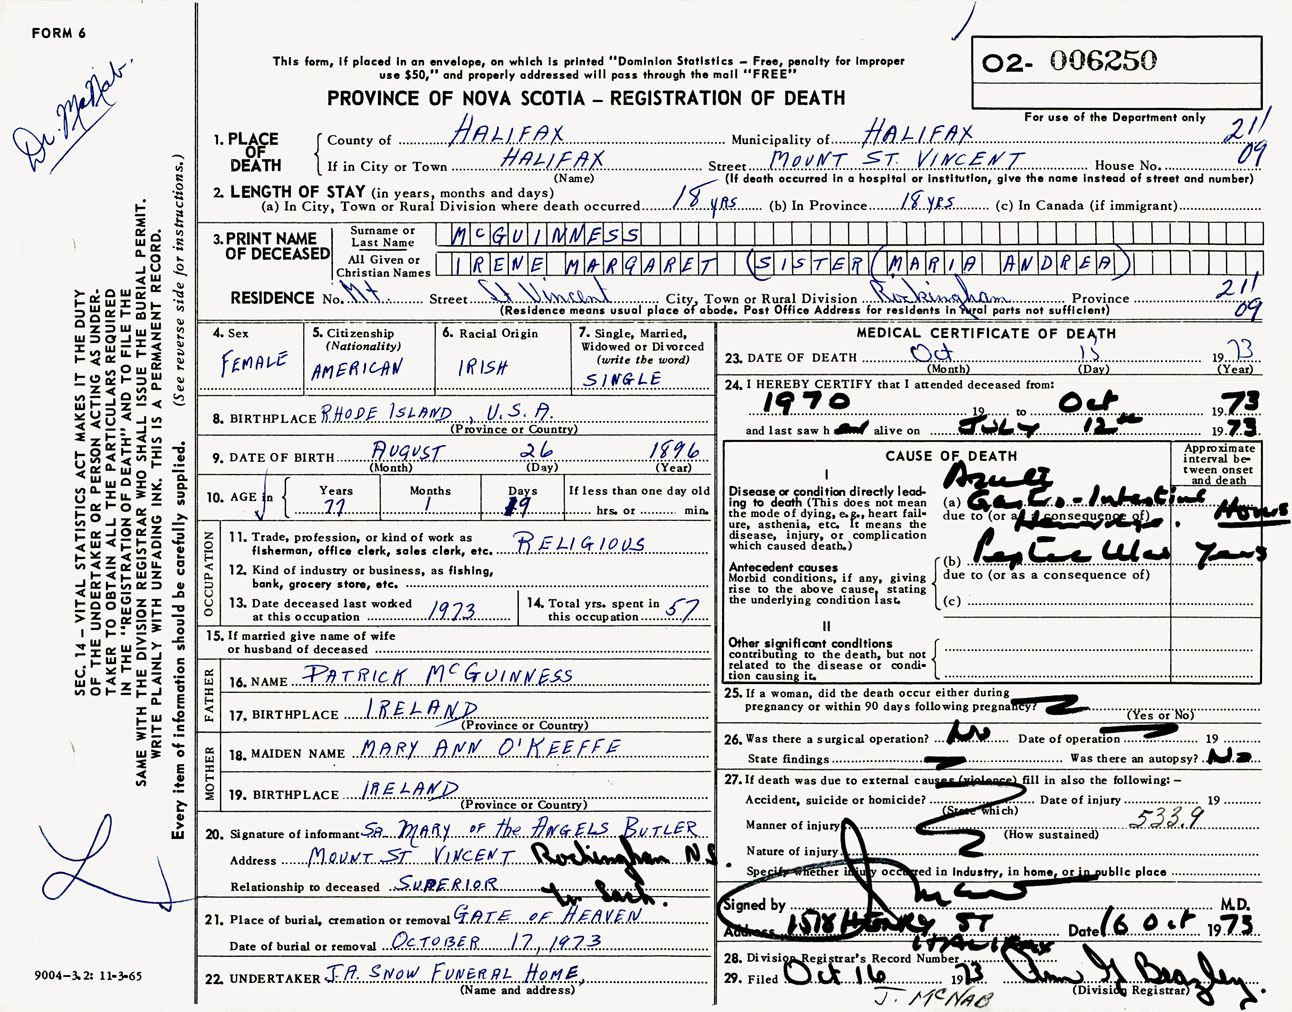 FORM 6
Dr. McNab.
This form, if placed in an envelope, on which is printed "Dominion Statistics – Free, penalty for improper
use $50," and properly addressed will pass through the mail "FREE"
PROVINCE OF NOVA SCOTIA – REGISTRATION OF DEATH
02- 006250
For use of the Department only
211
09
1. PLACE OF DEATH
County of HALIFAX Municipality of HALIFAX
If in City or Town HALIFAX Street MOUNT ST. VINCENT House No.
(Name) (If death occurred in a hospital or institution, give the name instead of street and number)
2. LENGTH OF STAY (in years, months and days)
(a) In City, Town or Rural Division where death occurred 18 yrs (b) In Province 18 yrs (c) In Canada (if immigrant)
3. PRINT NAME OF DECEASED
Surname or Last Name McGUINNESS
All Given or Christian Names IRENE MARGARET (SISTER (MARIA ANDREA)
RESIDENCE No. Mt. Street St Vincent City, Town or Rural Division Rockingham Province
(Residence means usual place of abode. Post Office Address for residents in rural parts not sufficient)
211
09
4. Sex FEMALE
5. Citizenship (Nationality) AMERICAN
6. Racial Origin IRISH
7. Single, Married, Widowed or Divorced (write the word) SINGLE
8. BIRTHPLACE RHODE ISLAND, U.S.A.
(Province or Country)
9. DATE OF BIRTH AUGUST 26 1896
(Month) (Day) (Year)
10. AGE in Years 77 Months 1 Days 19 If less than one day old hrs. or min.
OCCUPATION
11. Trade, profession, or kind of work as
fisherman, office clerk, sales clerk, etc. RELIGIOUS
12. Kind of industry or business, as fishing,
bank, grocery store, etc.
13. Date deceased last worked
at this occupation 1973
14. Total yrs. spent in
this occupation 57
15. If married give name of wife
or husband of deceased
FATHER
16. NAME PATRICK McGUINNESS
17. BIRTHPLACE IRELAND
(Province or Country)
MOTHER
18. MAIDEN NAME MARY ANN O'KEEFFE
19. BIRTHPLACE IRELAND
(Province or Country)
20. Signature of informant SR MARY OF the ANGELS BUTLER
Address MOUNT ST VINCENT Rockingham N.S.
Relationship to deceased SUPERIOR
21. Place of burial, cremation or removal GATE OF HEAVEN
Date of burial or removal OCTOBER 17, 1973
22. UNDERTAKER J.A. SNOW FUNERAL HOME,
(Name and address)
MEDICAL CERTIFICATE OF DEATH
23. DATE OF DEATH Oct 15 1973
(Month) (Day) (Year)
24. I HEREBY CERTIFY that I attended deceased from:
1970 19 to Oct 1973
and last saw h alive on JULY 12th 1973
CAUSE OF DEATH
Approximate interval between onset and death
I
Disease or condition directly leading to death (This does not mean the mode of dying, e.g., heart failure, asthenia, etc. It means the disease, injury, or complication which caused death.)
(a) Gastro-Intestinal
due to (or as a consequence of) Hours
(b) Peptic Ulcer Years
due to (or as a consequence of)
(c)
Antecedent causes
Morbid conditions, if any, giving rise to the above cause, stating the underlying condition last.
II
Other significant conditions
contributing to the death, but not related to the disease or condition causing it.
25. If a woman, did the death occur either during
pregnancy or within 90 days following pregnancy?
(Yes or No)
26. Was there a surgical operation? No Date of operation 19
State findings Was there an autopsy? No
27. If death was due to external causes (violence) fill in also the following: –
Accident, suicide or homicide? Date of injury 19
(State which)
Manner of injury 533.9
(How sustained)
Nature of injury
Specify whether injury occurred in industry, in home, or in public place
Signed by M.D.
Address 1578 HENRY ST Date 16 Oct 1973
HALIFAX
28. Division Registrar's Record Number
29. Filed Oct 16 1973 Ann G Beazley.
(Division Registrar)
J. McNAB
SEC. 14 – VITAL STATISTICS ACT MAKES IT THE DUTY
OF THE UNDERTAKER OR PERSON ACTING AS UNDER-
TAKER TO OBTAIN ALL THE PARTICULARS REQUIRED
IN THE "REGISTRATION OF DEATH" AND TO FILE THE
SAME WITH THE DIVISION REGISTRAR WHO SHALL ISSUE THE BURIAL PERMIT.
WRITE PLAINLY WITH UNFADING INK. THIS IS A PERMANENT RECORD.
Every item of information should be carefully supplied. (See reverse side for instructions.)
9004-3.2: 11-3-65